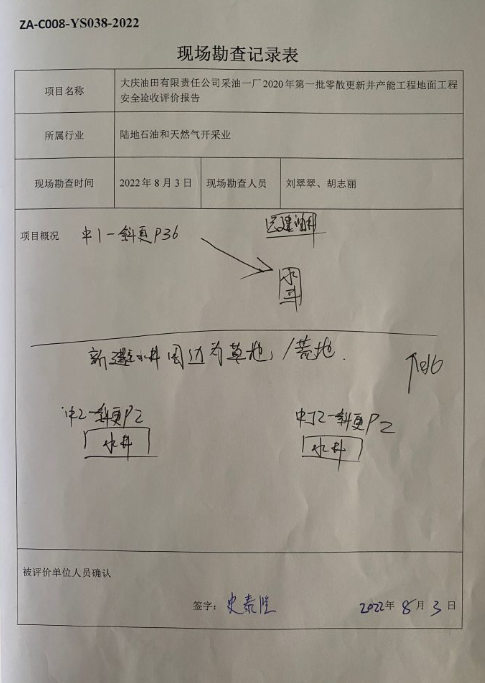 ZA-C008-YS038-2022
现场勘查记录表
项目名称
大庆油田有限责任公司采油一厂2020年第一批零散更新井产能工程地面工程
安全验收评价报告
所属行业
陆地石油和天然气开采业
现场勘查时间
2022年8月3日
现场勘查人员
刘翠翠、胡志丽
项目概况
中1-斜更P36
水井
新建水井周边为草地,/荒地.
北
中2-斜更P2
水井
中J2-斜更P2
水井
被评价单位人员确认
签字:
2022年8月3日